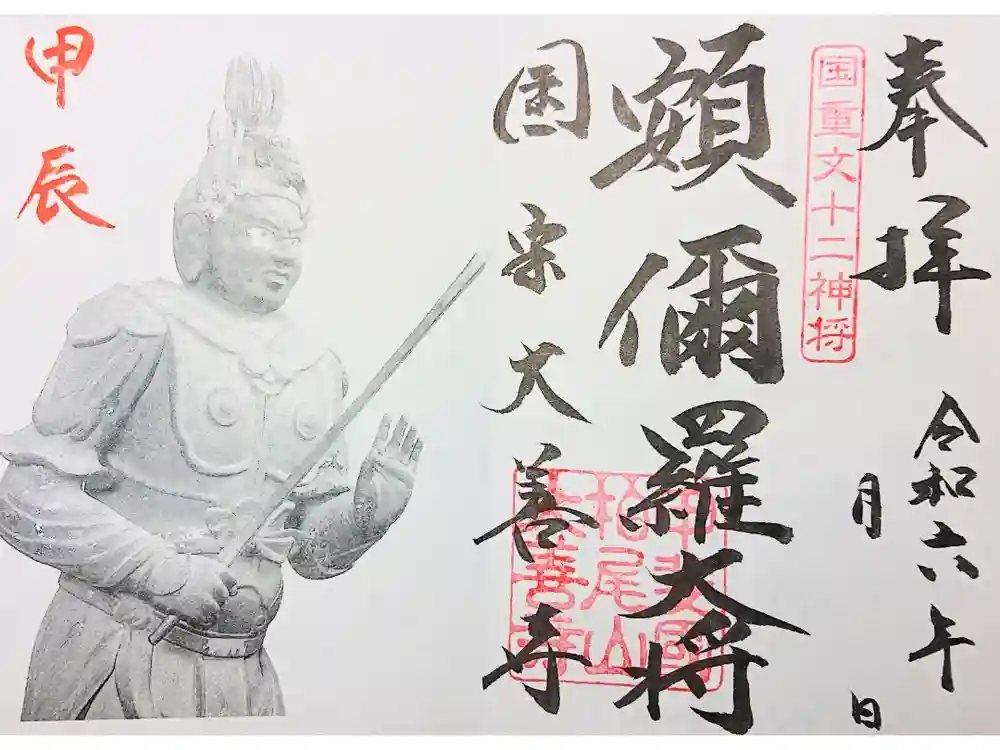 奉拝
令和六年
月 日
国重文十二神将
頞儞羅大将
甲斐國
柏尾山
大善寺
国宝大善寺
甲辰